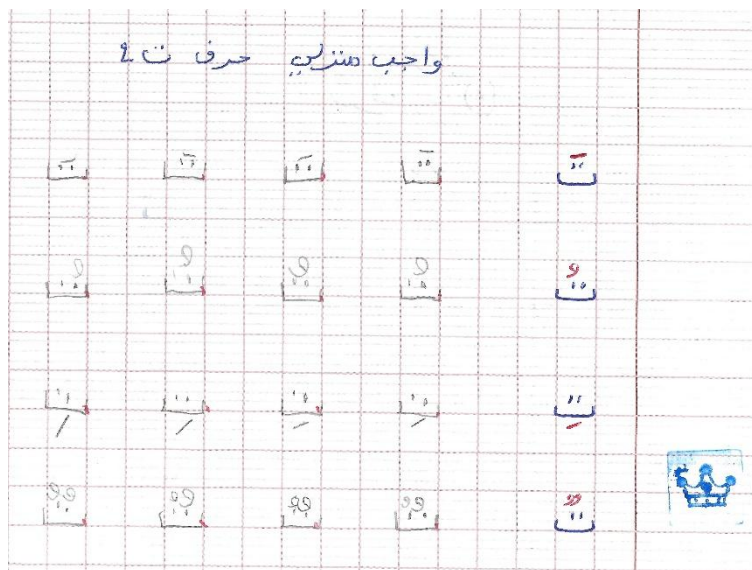 واجب منزلي حرف ت
تَ تَ تَ تَ تَ
تُ تُ تُ تُ تُ
تِ تِ تِ تِ تِ
تٌ تٌ تٌ تٌ تٌ